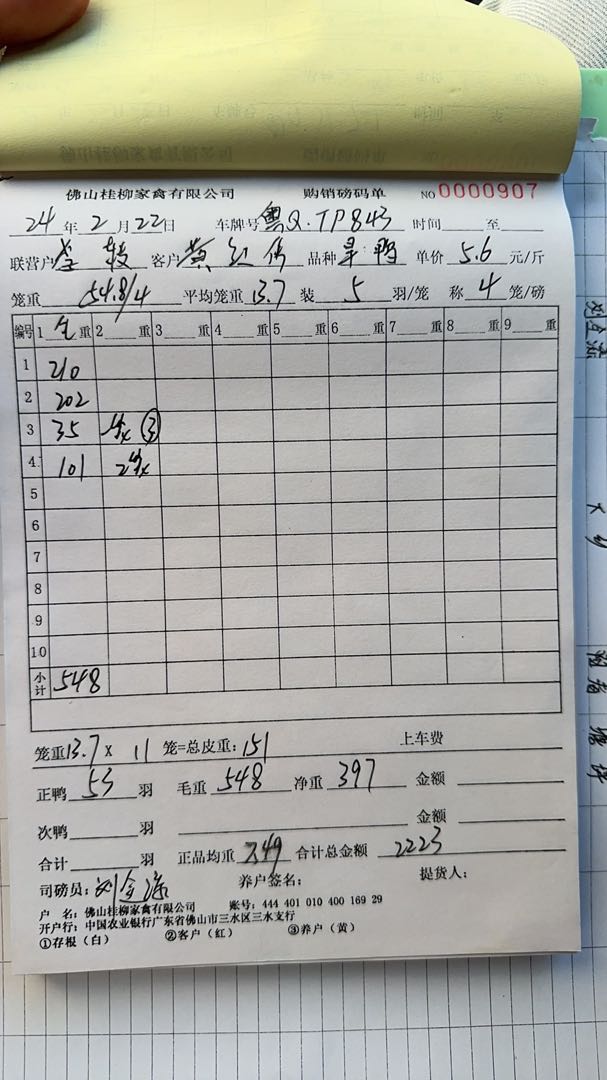 佛山桂柳家禽有限公司 购销磅码单 NO 0000907
24年2月22日 车牌号 粤Q.TP843 时间 至
联营户 客户 黄 品种 旱鸭 单价 5.6 元/斤
笼重 54.8/4 平均笼重 13.7 装 5 羽/笼 称 4 笼/磅
编号 1 毛 重 2 重 3 重 4 重 5 重 6 重 7 重 8 重 9 重
1 210
2 202
3 35 ③
4 101
5
6
7
8
9
10
小计 548
笼重 13.7 x 11 笼=总皮重: 151 上车费
正鸭 53 羽 毛重 548 净重 397 金额
次鸭 羽 金额
合计 羽 正品均重 7.49 合计总金额 2223
司磅员: 刘金 养户签名: 提货人:
户 名: 佛山桂柳家禽有限公司 账号: 444 401 010 400 169 29
开户行: 中国农业银行广东省佛山市三水区三水支行
①存根(白) ②客户(红) ③养户(黄)